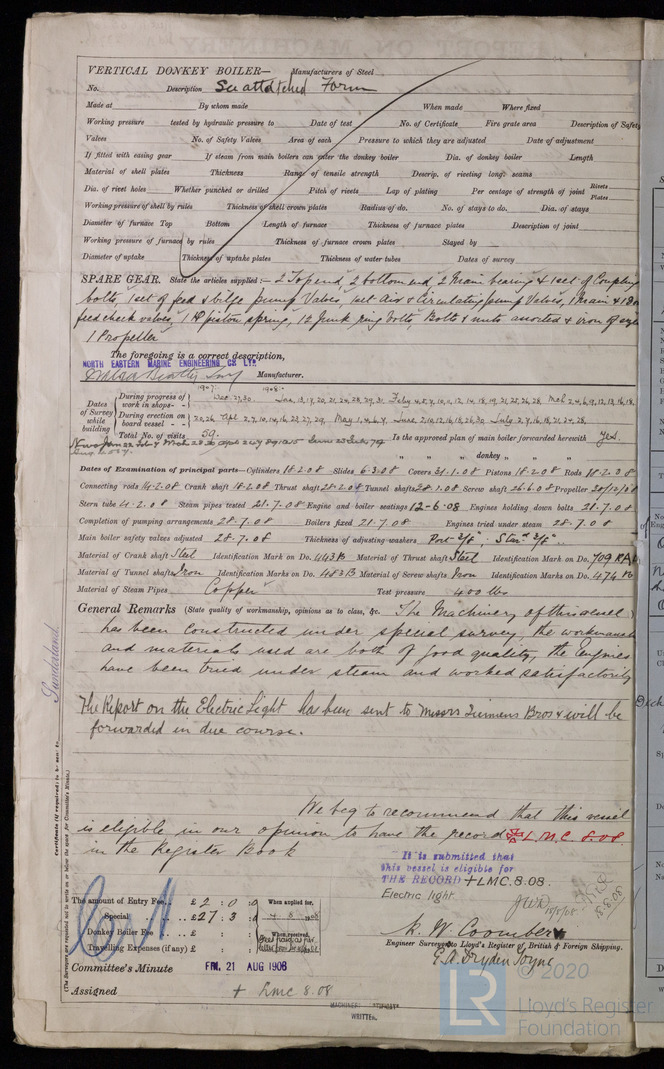 VERTICAL DONKEY BOILER— Manufacturers of Steel
No. Description See attatched Form
Made at By whom made When made Where fixed
Working pressure tested by hydraulic pressure to Date of test No. of Certificate Fire grate area Description of Safety
Valves No. of Safety Valves Area of each Pressure to which they are adjusted Date of adjustment
If fitted with easing gear If steam from main boilers can enter the donkey boiler Dia. of donkey boiler Length
Material of shell plates Thickness Range of tensile strength Descrip. of riveting long. seams
Dia. of rivet holes Whether punched or drilled Pitch of rivets Lap of plating Per centage of strength of joint Rivets Plates
Working pressure of shell by rules Thickness of shell crown plates Radius of do. No. of stays to do. Dia. of stays
Diameter of furnace Top Bottom Length of furnace Thickness of furnace plates Description of joint
Working pressure of furnace by rules Thickness of furnace crown plates Stayed by
Diameter of uptake Thickness of uptake plates Thickness of water tubes Dates of survey
SPARE GEAR. State the articles supplied:— 2 Top end, 2 bottom end, 2 Main bearing & 1 set of Coupling
bolts, 1 set of feed & bilge pump Valves, 1 set Air & Circulating pump Valves, 1 Main &
feed check valves, 1 HP piston spring, 12 Junk ring bolts, Bolts & nuts assorted & iron of
1 Propeller
The foregoing is a correct description,
NORTH EASTERN MARINE ENGINEERING CO. LTD.
Manufacturer.
1907. 1908.
Dates of Survey while building
During progress of work in shops - - Dec. 27, 30. Jan. 13, 17, 20, 21, 24, 28, 29, 31 Feb 4, 5, 7, 10, 11, 12, 14, 18, 19, 21, 25, 26, 28 Mch 2, 4, 6, 9, 12, 13, 16, 18,
During erection on board vessel - - - 20, 26 Apl 2, 7, 10, 14, 16, 23, 27, 29, May 1, 4, 6, 7, June 2, 10, 12, 16, 18, 26, 30 July 2, 7, 16, 18, 21, 24, 28,
Total No. of visits 59. Is the approved plan of main boiler forwarded herewith Yes.
" " " donkey " " "
Dates of Examination of principal parts—Cylinders 18.2.08 Slides 6.3.08 Covers 31.1.08 Pistons 18.2.08 Rods 18.2.08
Connecting rods 14.2.08 Crank shaft 18.2.08 Thrust shaft 28.2.08 Tunnel shafts 28.1.08 Screw shaft 26.6.08 Propeller
Stern tube 4.2.08 Steam pipes tested 21.7.08 Engine and boiler seatings 12-6.08 Engines holding down bolts 21.7.08
Completion of pumping arrangements 28.7.08 Boilers fixed 21.7.08 Engines tried under steam 28.7.08
Main boiler safety valves adjusted 28.7.08 Thickness of adjusting washers Port 3/8" Starᵈ 3/8"
Material of Crank shaft Steel Identification Mark on Do. 443B Material of Thrust shaft Steel Identification Mark on Do. 709
Material of Tunnel shafts Iron Identification Marks on Do. 483B Material of Screw shafts Iron Identification Marks on Do. 474
Material of Steam Pipes Copper Test pressure 400 lbs
General Remarks (State quality of workmanship, opinions as to class, &c. The Machinery of this vessel
has been constructed under special survey, the workmanship
and materials used are both of good quality, the Engines
have been tried under steam and worked satisfactorily
The Report on the Electric Light has been sent to Messrs Siemens Bros & will be
forwarded in due course.
We beg to recommend that this vessel
is eligible in our opinion to have the record + L.M.C. 8.08.
in the Register Book
It is submitted that
this vessel is eligible for
THE RECORD + LMC. 8.08.
Electric light.
Sunderland
Certificate (if required) to be sent to
(The Surveyors are requested not to write on or below the space for Committee's Minute.)
The amount of Entry Fee.. £ 2 : 0 : 0 When applied for,
Special .. £ 27 : 3 : 4.8.1908
Donkey Boiler Fee .. £ : : When received,
Travelling Expenses (if any) £ : :
K. W. Coomber
Engineer Surveyor to Lloyd's Register of British & Foreign Shipping.
G. A. Dryden Toyne
Committee's Minute FRI. 21 AUG 1908
Assigned + LMC 8.08
WRITTEN.
LR
© 2020
Lloyd's Register
Foundation